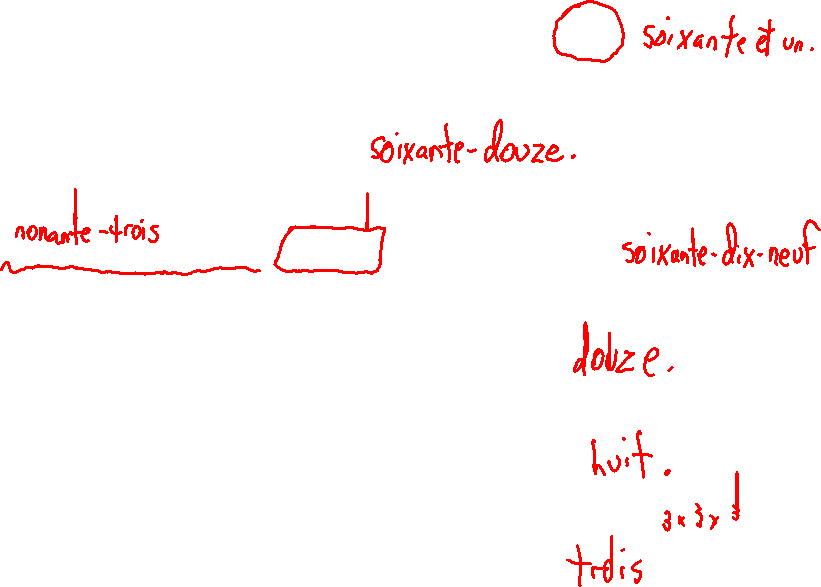 soixante et un.
soixante-douze.
nonante-trois
soixante-dix-neuf
douze.
huit.
3x3x3
trois